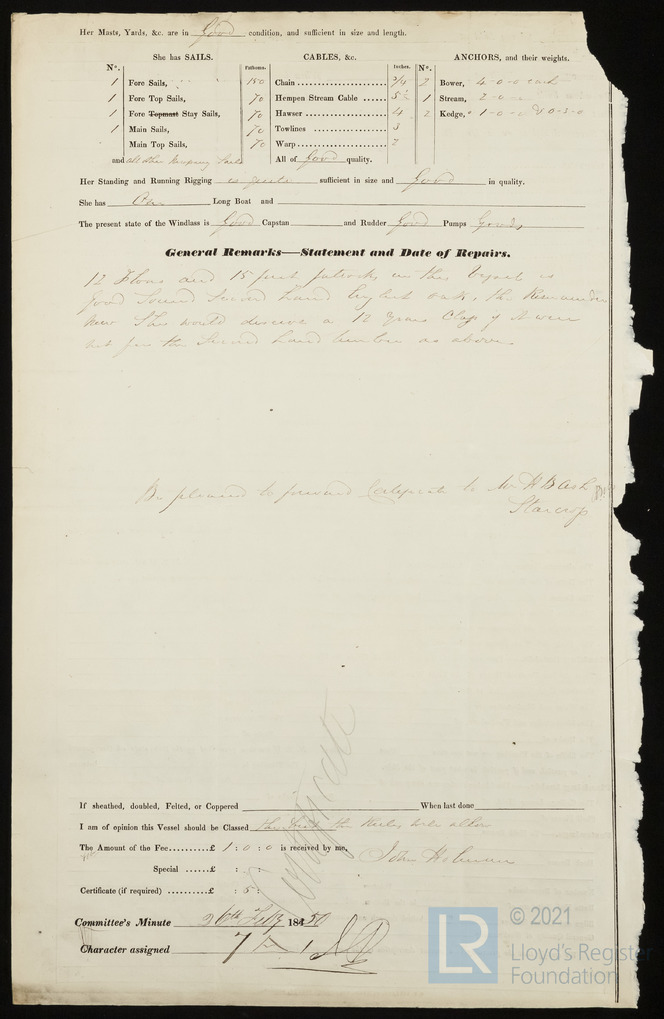 Her Masts, Yards, &c. are in Good condition, and sufficient in size and length.
She has SAILS. CABLES, &c. ANCHORS, and their weights.
No. Fathoms. Inches. No.
1 Fore Sails, 150 Chain 3/4 2 Bower, 4-0-0 each
1 Fore Top Sails, 70 Hempen Stream Cable 5½ 1 Stream, 2-0-
1 Fore Topmast Stay Sails, 70 Hawser 4 2 Kedge, 1-0-0 & 0-3-0
1 Main Sails, 70 Towlines 3
Main Top Sails, 70 Warp 2
and all other necessary Sails All of Good quality.
Her Standing and Running Rigging is quite sufficient in size and Good in quality.
She has One Long Boat and
The present state of the Windlass is Good Capstan and Rudder Good Pumps Good
General Remarks—Statement and Date of Repairs.
12 Floors and 15 first futtocks in this Vessel is
good Sound Second hand English oak, the Remainder
New She would deserve a 12 years Class if it were
not for the Second hand timber as above
Be pleased to forward Certificate to Mr H B Ash
Starcross
Certificate
If sheathed, doubled, Felted, or Coppered When last done
I am of opinion this Vessel should be Classed the first the Rules will allow
The Amount of the Fee £ 1 : 0 : 0 is received by me, John Holman
Special £ : :
Certificate (if required) £ : 5 :
Committee's Minute 26th Feby 1850
Character assigned 7 A 1
© 2021
LR
Lloyd's Register
Foundation